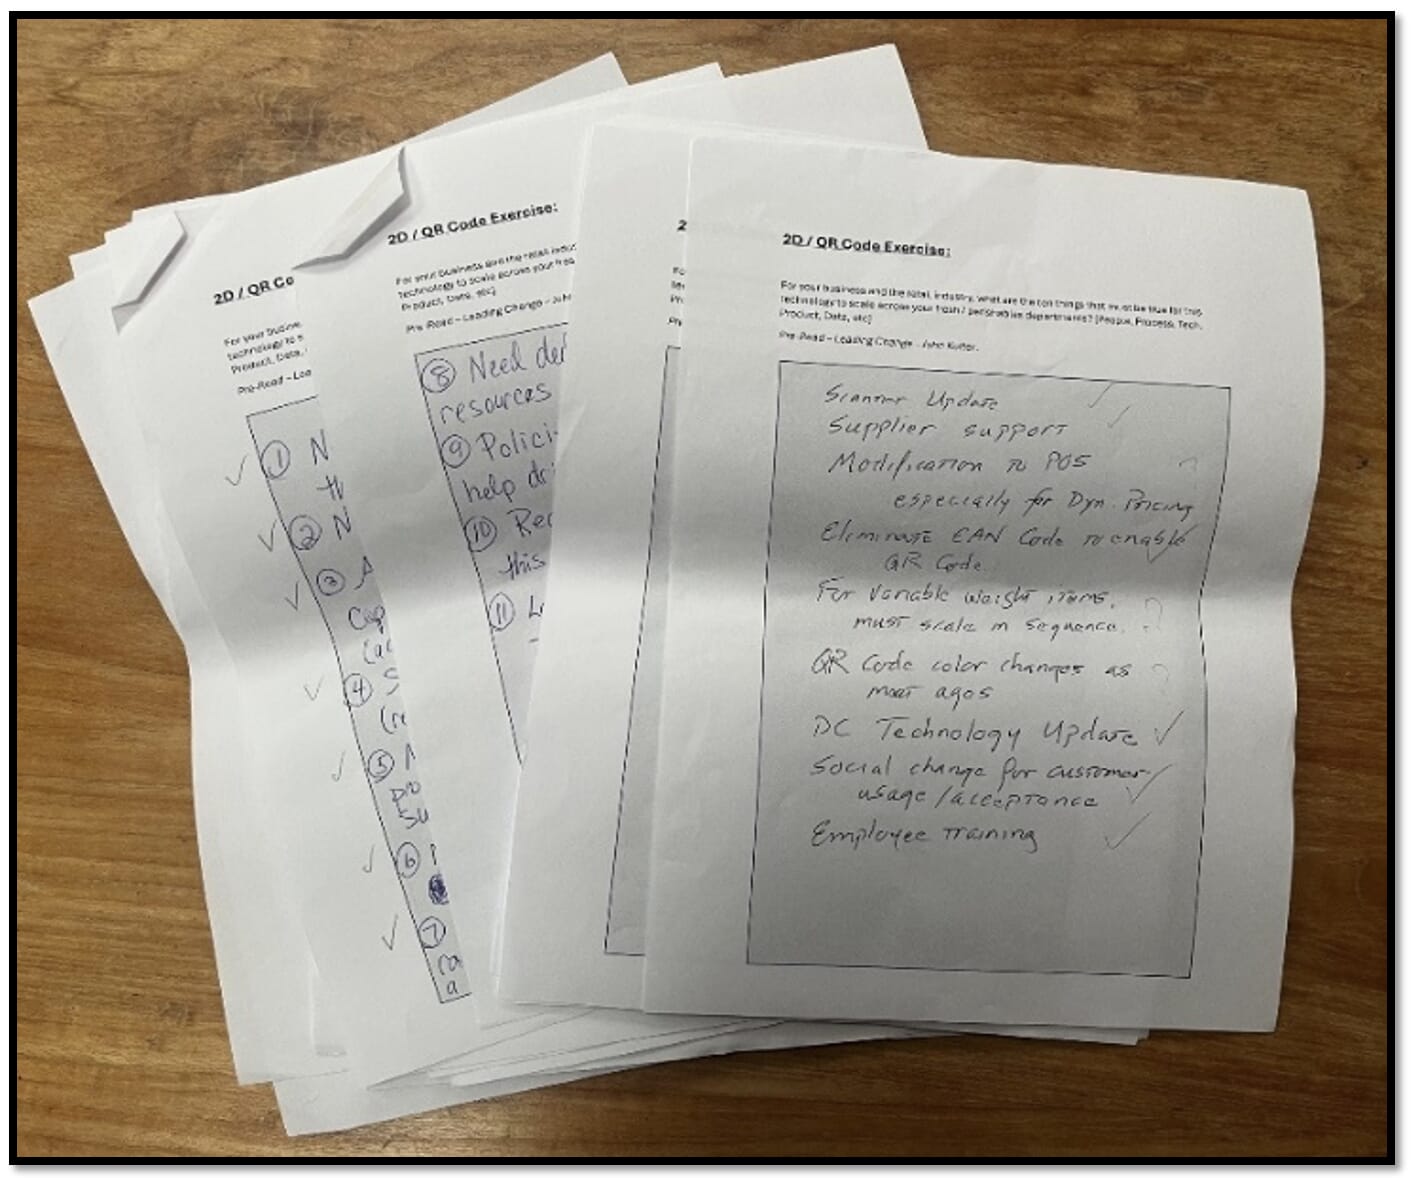 2D / QR Co
For your busine
technology to s
Product, Data,
Pre-Read – Lea
① N
th
② N
③ A
Cap
(ac
④
(re
⑤
⑥
⑦
a
2D / QR Code Exercise:
For your business and the retail indus
technology to scale across your fres
Product, Data, etc]
Pre-Read – Leading Change – John
⑧ Need de
resources
⑨ Polici
help dr
⑩ Rec
this
⑪ L
2
Fo
tec
Pr
Pr
2D / QR Code Exercise:
For your business and the retail industry, what are the ten things that must be true for this
technology to scale across your fresh / perishables departments? [People, Process, Tech,
Product, Data, etc]
Pre-Read – Leading Change – John Kotter.
Scanner Update ✓
Supplier support ✓
Modification to POS
especially for Dyn. Pricing
Eliminate EAN Code to enable ✓
QR Code
For variable weight items, ?
must scale in sequence.
QR Code color changes as ?
meat ages
DC Technology Update ✓
Social change for customer
usage / acceptance ✓
Employee training ✓